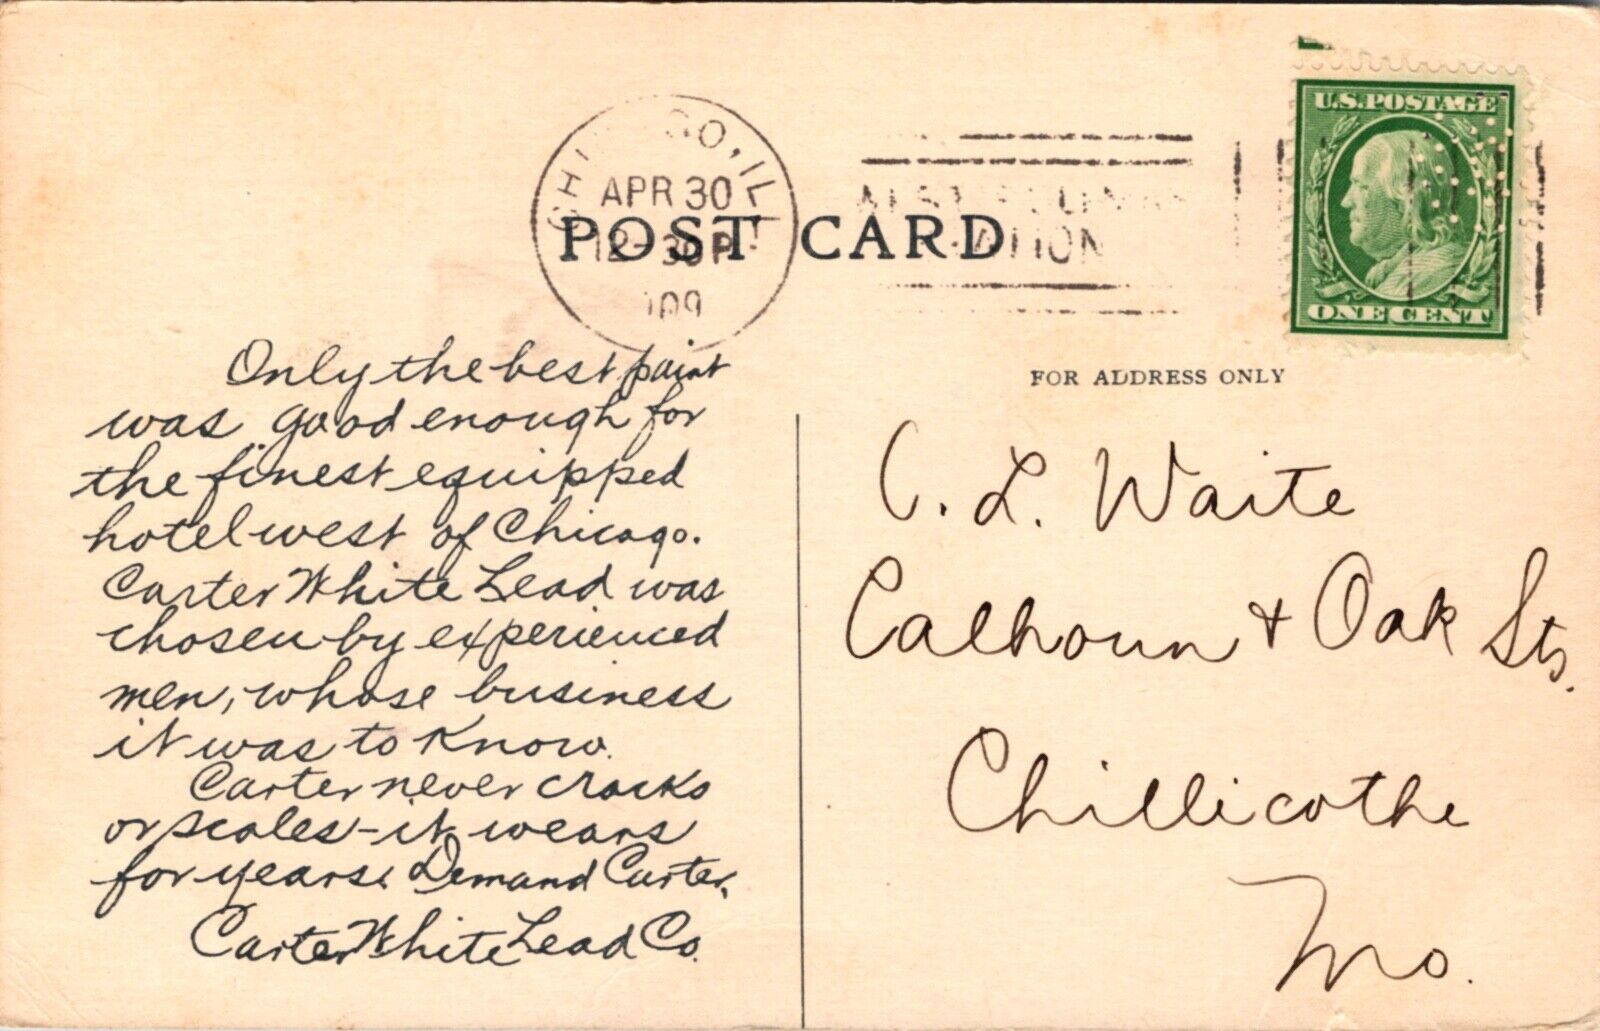 U.S.POSTAGE
ONE CENT
APR 30
12-30 P
POST CARD
FOR ADDRESS ONLY
Only the best paint
was good enough for
the finest equipped
hotel west of Chicago.
Carter White Lead was
chosen by experienced
men, whose business
it was to know.
Carter never cracks
or scales - it wears
for years. Demand Carter.
Carter White Lead Co.
C. L. Waite
Calhoun + Oak Sts.
Chillicothe
Mo.